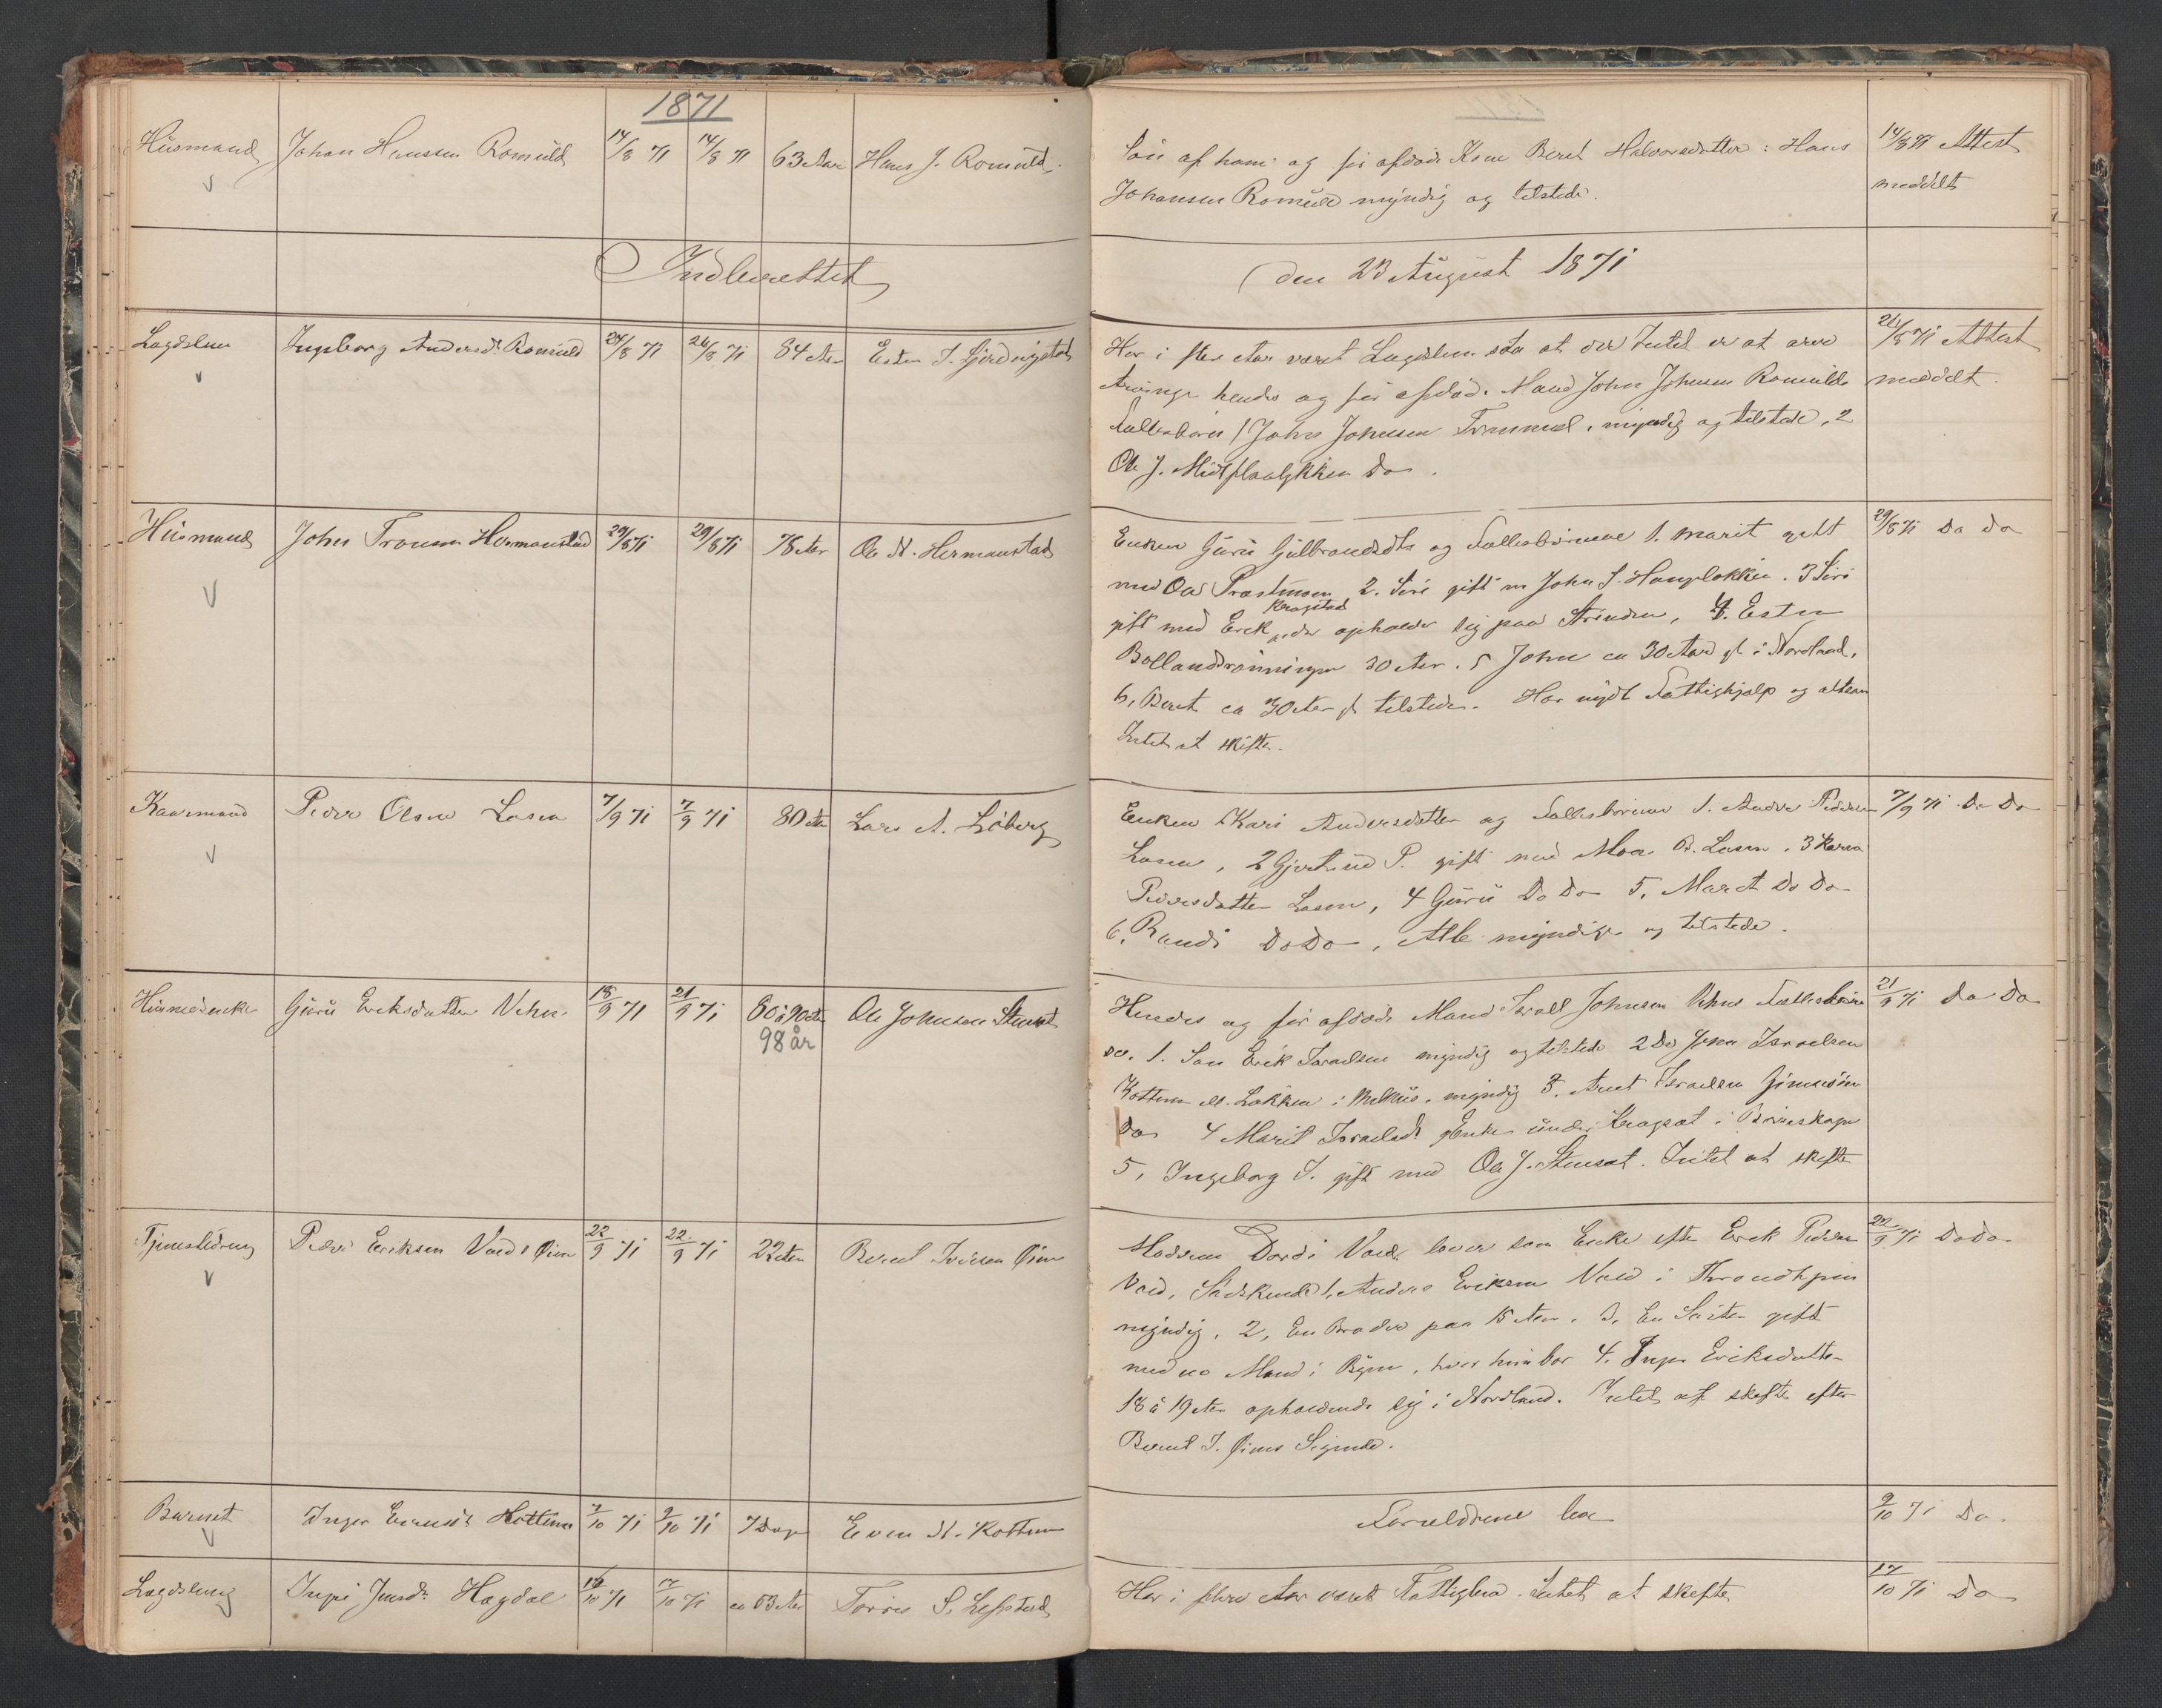 1871
Husmand Johan Hanssen Romuld 14/8 71 14/8 71 63 Aar Hans J. Romuld.
Søn af ham og før afdøde Kone Beret Halvorsdatter: Hans 14/8 71 Attest
Johansen Romuld myndig og tilstede. meddelt
Indberettet den 23 August 1871
Lagdslem Ingeborg Andersd. Romuld 24/8 71 26/8 71 84 Aar Esten J.
Har i flere Aar været Lagdslem saa at der Intet er at arve 26/8 71 Attest
Arvinge hendes og før afdøde Mand John Johnsen Romulds meddelt.
Fællesbørn 1 John Johnsen myndig og tilstede, 2
Ole J. Do.
Husmand John Tronsen Hermanstad 29/8 71 29/8 71 78 Aar Ole N. Hermanstad
Enken Guru Gulbrandsdtr og Fællesbørnene 1. Marit gift 29/8 71 Do Do
med Ole Præstmoen 2. Siri gift m John S. Haugløkken. 3 Siri
Kragstad
gift med Erik der opholder sig paa Strinden, 4. Esten
Bollandsrønningen 30 Aar. 5 John ca 30 Aar gl. i Nordland,
6, Beret ca 30 Aar gl. tilstede. Har nydt Fattighjælp og altsaa
Intet at skifte.
Kaarmand Peder Olsen Losen 7/9 71 7/9 71 80 Aar Lars A. Løberg
Enken Kari Andersdatter og Fællesbørnene 1. Anders Pedersen 7/9 71 Do Do
Losen, 2 Gjertrud P. gift med Moen P. Losen. 3 Karen
Pedersdatter Losen, 4 Guru Do Do 5, Maret Do Do
6, Randi Do Do, Alle myndige og tilstede.
Husmedenke Guru Eriksdatter Vehn 18/9 71 21/9 71 80 à 90 Aar Ole Johnsen Stensat
98 år
Hendes og før afdøde Mand Israel Johnsen Vehns Fællesbørn 21/9 71 Do Do
1. Søn Erik Israelsen myndig og tilstede 2 Do John Israelsen
Kottum Løkken i Melhus. myndig 3. Arnt Israelsen
Do 4 Marit Israelsdt. Enke under Kragsat i Børseskogn
5, Ingeborg I. gift med Ole J. Stensat. Intet at skifte
Tjenestedreng Peder Eriksen Vold Øien 22/9 71 22/9 71 22 Aar Berent Iversen Øien
Moderen Dordi Vold lever som Enke efter Erik Pedersen 22/9 71 Do Do
Vold, Sødskende 1, Anders Eriksen Vold i Throndhjem
myndig, 2, En Broder paa 15 Aar. 3, En Søster gift
med en Mand i Byen, hvor hun bor 4. Inger Eriksdatter
18 à 19 Aar opholdende sig i Nordland. Intet at skifte efter
Berent I. Øiens Sigende.
Barnet Inger Evensdt. Kottum 2/10 71 9/10 71 7 Dage Even N. Kottum
Forældrene leve 9/10 71 Do.
Lagdslem Inger Jonsdr. Hagdal 16/10 71 17/10 71 ca 63 Aar Tørris S. Lefstad
Har i flere Aar været Fattiglem. Intet at skifte 17/10 71 Do